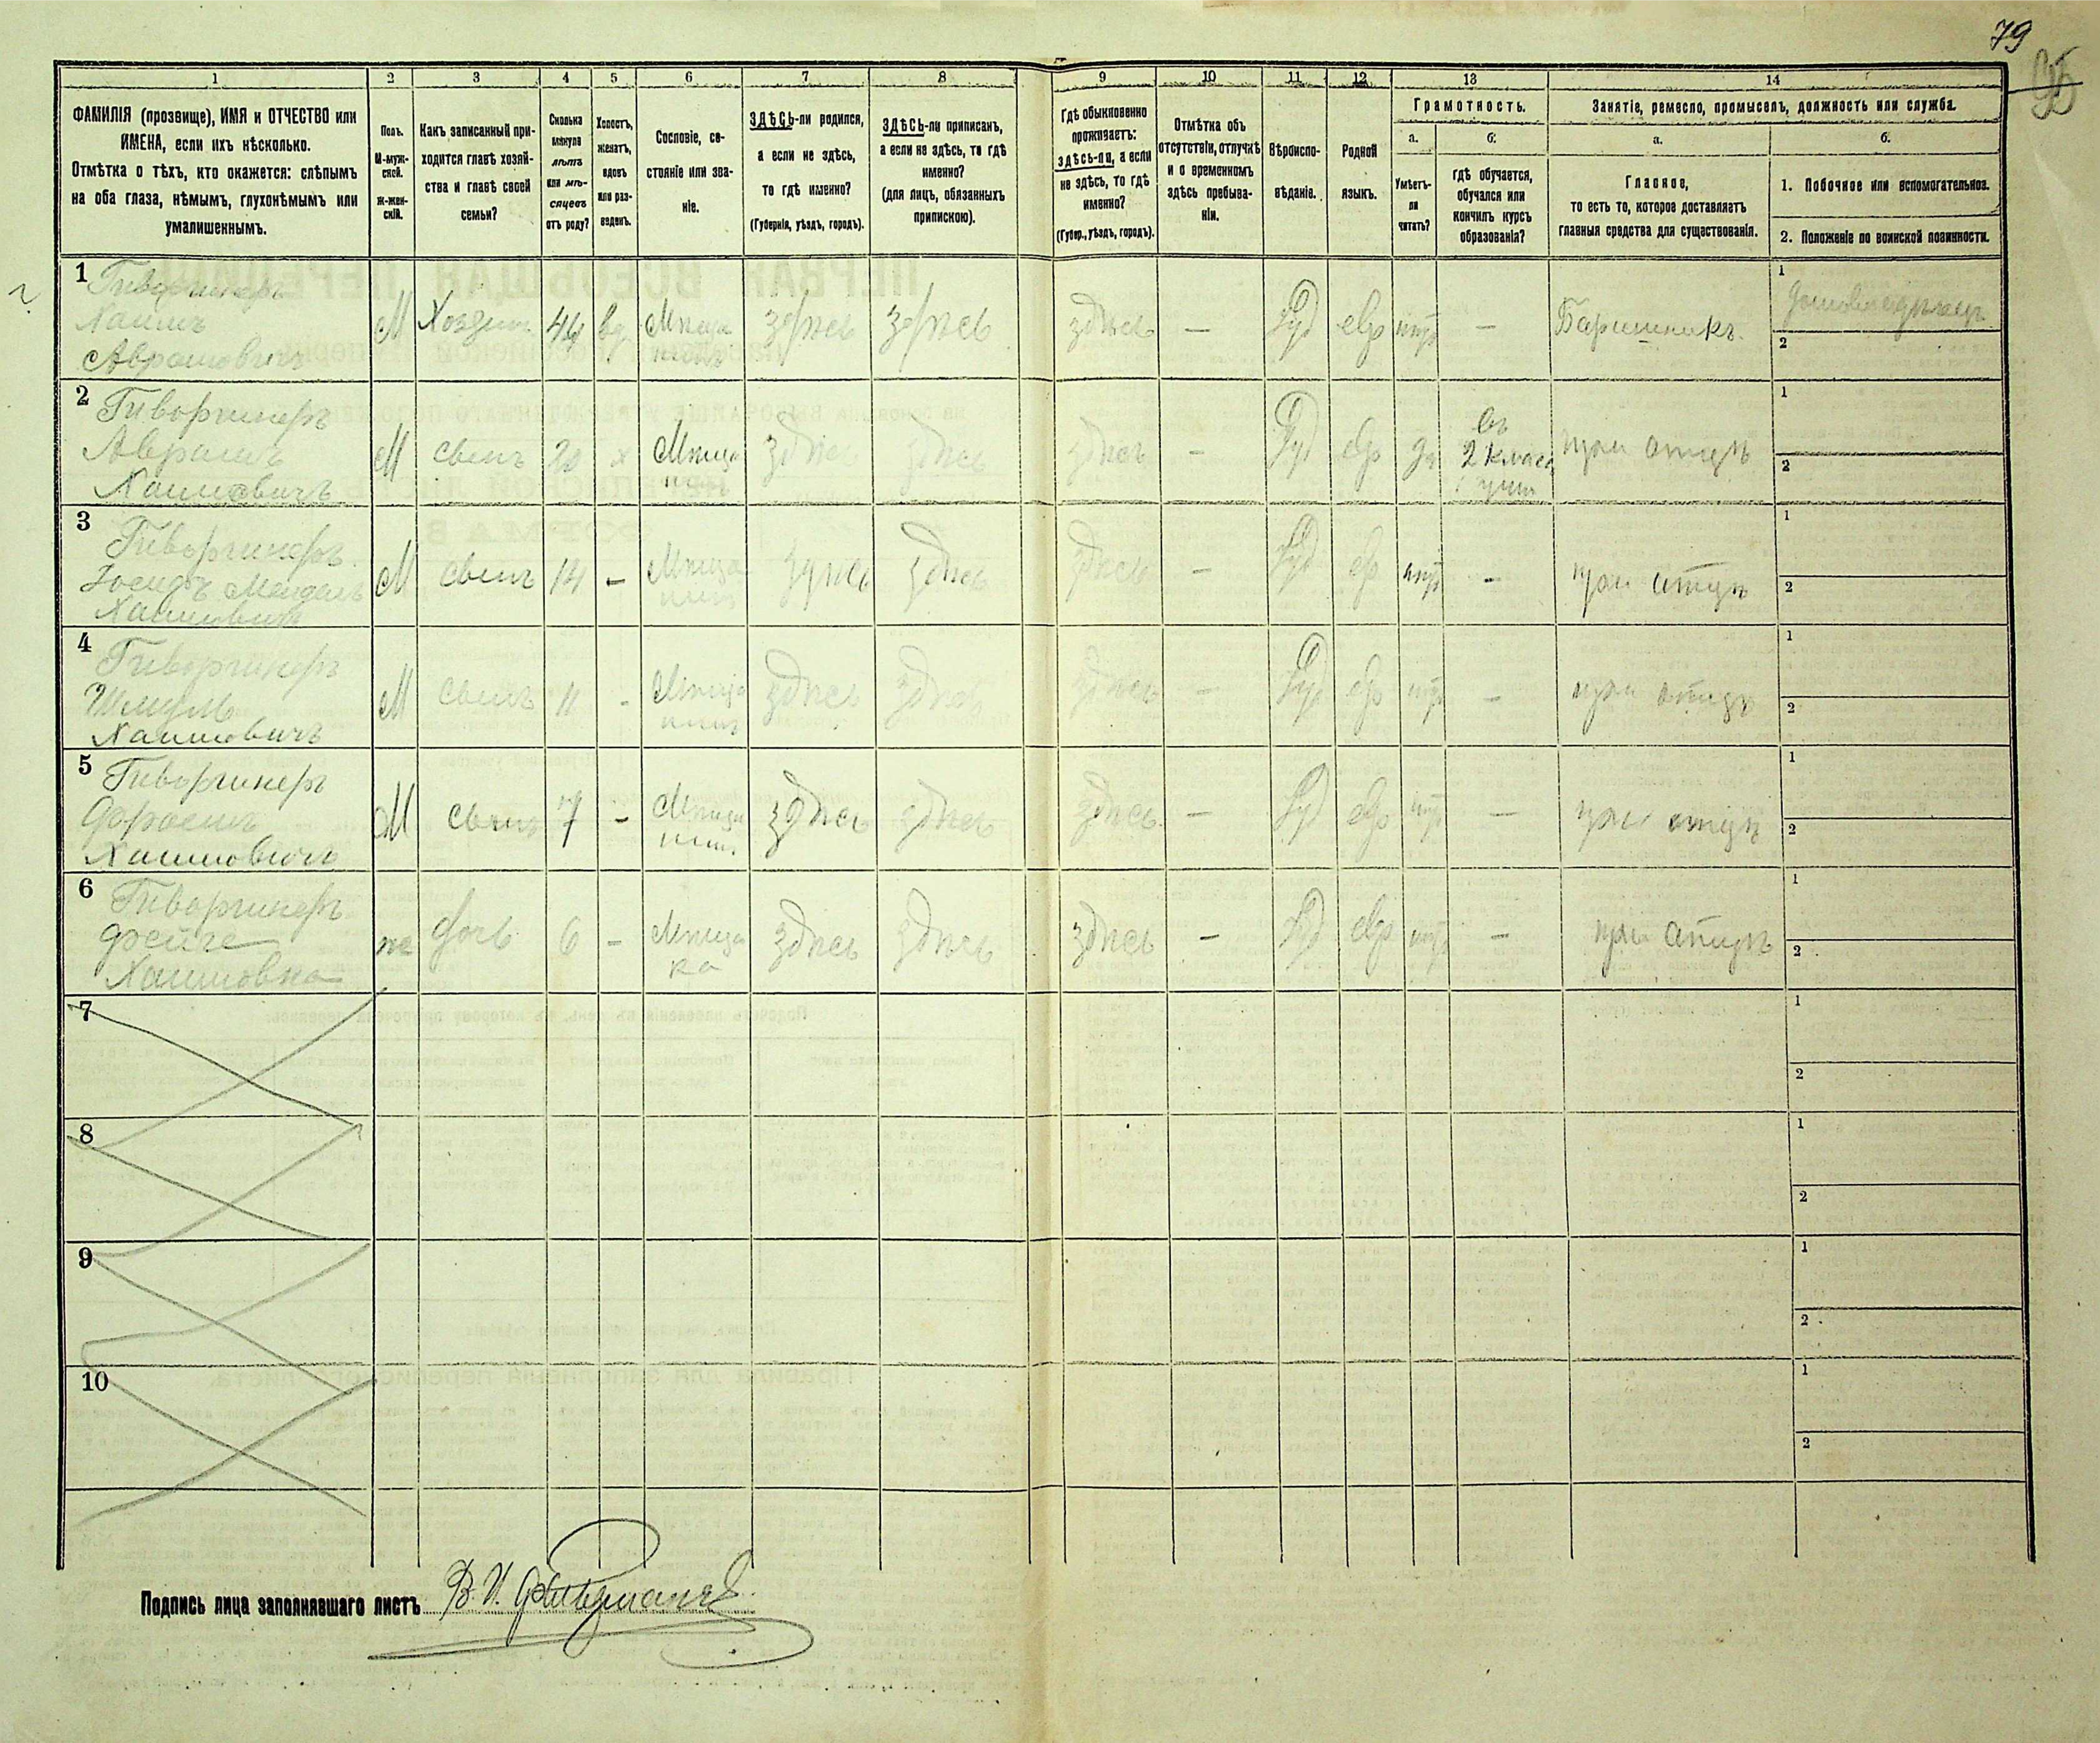 79
95
1
2
3
4
5
6
7
8
9
10
11
12
13
14
ФАМИЛІЯ (прозвище), ИМЯ и ОТЧЕСТВО или
ИМЕНА, если ихъ нѣсколько.
Отмѣтка о тѣхъ, кто окажется: слѣпымъ
на оба глаза, нѣмымъ, глухонѣмымъ или
умалишеннымъ.
Полъ.
М-муж-
ской.
ж-жен-
скій.
Какъ записанный при-
ходится главѣ хозяй-
ства и главѣ своей
семьи?
Сколько
минуло
лѣтъ
или мѣ-
сяцевъ
отъ роду?
Холостъ,
женатъ,
вдовъ
или раз-
веденъ.
Сословіе, со-
стояніе или зва-
ніе.
ЗДѢСЬ-ли родился,
а если не здѣсь,
то гдѣ именно?
(Губернія, уѣздъ, городъ).
ЗДѢСЬ-ли приписанъ,
а если не здѣсь, то гдѣ
именно?
(для лицъ, обязанныхъ
припискою).
Гдѣ обыкновенно
проживаетъ:
здѣсь-ли, а если
не здѣсь, то гдѣ
именно?
(Губер., уѣздъ, городъ).
Отмѣтка объ
отсутствіи, отлучкѣ
и о временномъ
здѣсь пребыва-
ніи.
Вѣроиспо-
вѣданіе.
Родной
языкъ.
Грамотность.
а.
Умѣетъ-
ли
читать?
б.
гдѣ обучается,
обучался или
кончилъ курсъ
образованія?
Занятіе, ремесло, промыселъ, должность или служба.
а.
Главное,
то есть то, которое доставляетъ
главныя средства для существованія.
б.
1. Побочное или вспомогательное.
2. Положеніе по воинской повинности.
1
Гиворчинеръ
Хаимъ
Аврамовичъ
М Хозяин 44 вд. Мѣща
нинъ
здѣсь здѣсь здѣсь — Іуд евр нѣт — Барышникъ.
1 Домовладѣлецъ
2
2 Гиворчинеръ
Аврамъ
Хаимовичъ
М сынъ 20 х Мѣща
нин
здѣсь здѣсь здѣсь — Іуд евр да
въ
2 класс
учил
при отцѣ
1
2
3
Гиворчинеръ
Іосифъ Мендель
Хаимовичъ
М сынъ 14 — Мѣща
нин
здѣсь здѣсь здѣсь — Іуд евр нѣт — при отцѣ
1
2
4 Гиворчинеръ
Шмуль
Хаимовичъ
М сынъ 11 - Мѣща
нин
здѣсь здѣсь здѣсь — Іуд евр нѣт — при отцѣ
1
2
5 Гиворчинеръ
Хаимовичъ
М сынъ 7 - Мѣща
нин
здѣсь здѣсь здѣсь — Іуд евр нѣт — при отцѣ
1
2
6 Гиворчинеръ
Фейге
Хаимовна
ж дочь 6 — Мѣща
ка
здѣсь здѣсь здѣсь — Іуд евр нѣт — при отцѣ
1
2
7
1
2
8
1
2
9
1
2
10
1
2
Подпись лица заполнявшаго листъ В. И.